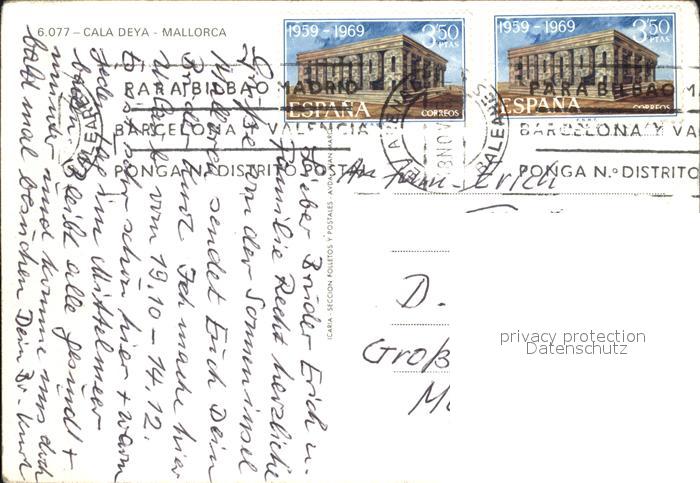 6.077 – CALA DEYA - MALLORCA
1959 - 1969
3'50
PTAS
EUROPA
CEPT
ESPAÑA
CORREOS
1959 - 1969
3'50
PTAS
EUROPA
CEPT
ESPAÑA
CORREOS
PARA BILBAO MADRID
BARCELONA Y VALENCIA
PONGA N.º DISTRITO POSTAL
BALEARES
PARA BILBAO M
BARCELONA Y VA
PONGA N.º DISTRITO
Lieber Bruder Erich u.
Familie Recht herzliche
Grüße von der Sonneninsel
Mallorca sendet Euch Dein
Bruder Kurt Ich mache hier
Urlaub vom 19.10 – 14.12.
Es ist sehr schön hier + warm
Jeden Tag im Mittelmeer
baden Bleibt alle gesund +
munter und komme uns doch
bald mal besuchen Dein Br. Kurt
ICARIA - SECCION FOLLETOS Y POSTALES - AVDA. SAN
An Fam. Erich
D.
Groß
privacy protection
Datenschutz